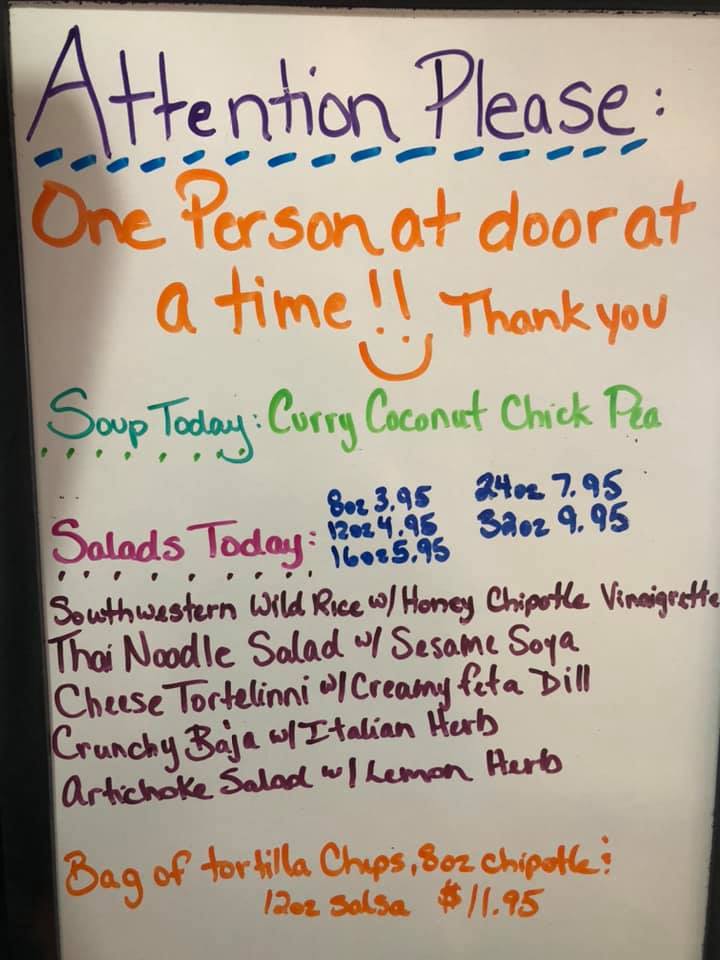 Attention Please:
One Person at door at
a time!! Thank you
Soup Today: Curry Coconut Chick Pea
8oz 3.95 24oz 7.95
12oz 4.95 32oz 9.95
Salads Today: 16oz 5.95
Southwestern Wild Rice w/ Honey Chipotle Vinaigrette
Thai Noodle Salad w/ Sesame Soya
Cheese Tortelinni w/ Creamy feta Dill
Crunchy Baja w/ Italian Herb
Artichoke Salad w/ Lemon Herb
Bag of tortilla Chips, 8oz chipotle &
12oz salsa $11.95